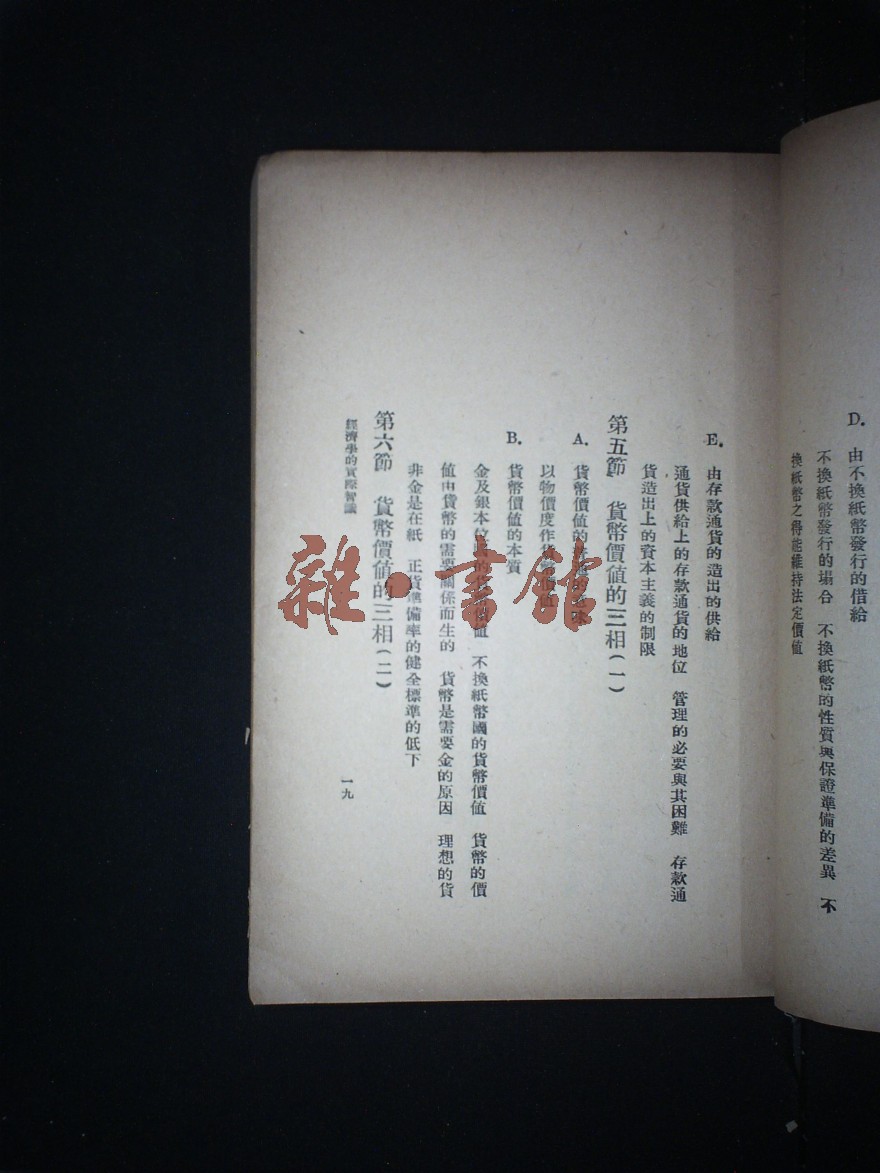 D. 由不換紙幣發行的借給
不換紙幣發行的場合 不換紙幣的性質與保證準備的差異 不
換紙幣之得能維持法定價值
E. 由存款通貨的造出的供給
通貨供給上的存款通貨的地位 管理的必要與其困難 存款通
貨造出上的資本主義的制限
第五節 貨幣價值的三相(一)
A. 貨幣價值的普通的意味
以物價度作貨幣價值
B. 貨幣價值的本質
金及銀本位國的貨幣價值 不換紙幣國的貨幣價值 貨幣的價
值由貨幣的需要關係而生的 貨幣是需要金的原因 理想的貨
非金是在紙 正貨準備率的健全標準的低下
第六節 貨幣價值的三相(二)
經濟學的實際智識
一九
雜·書館